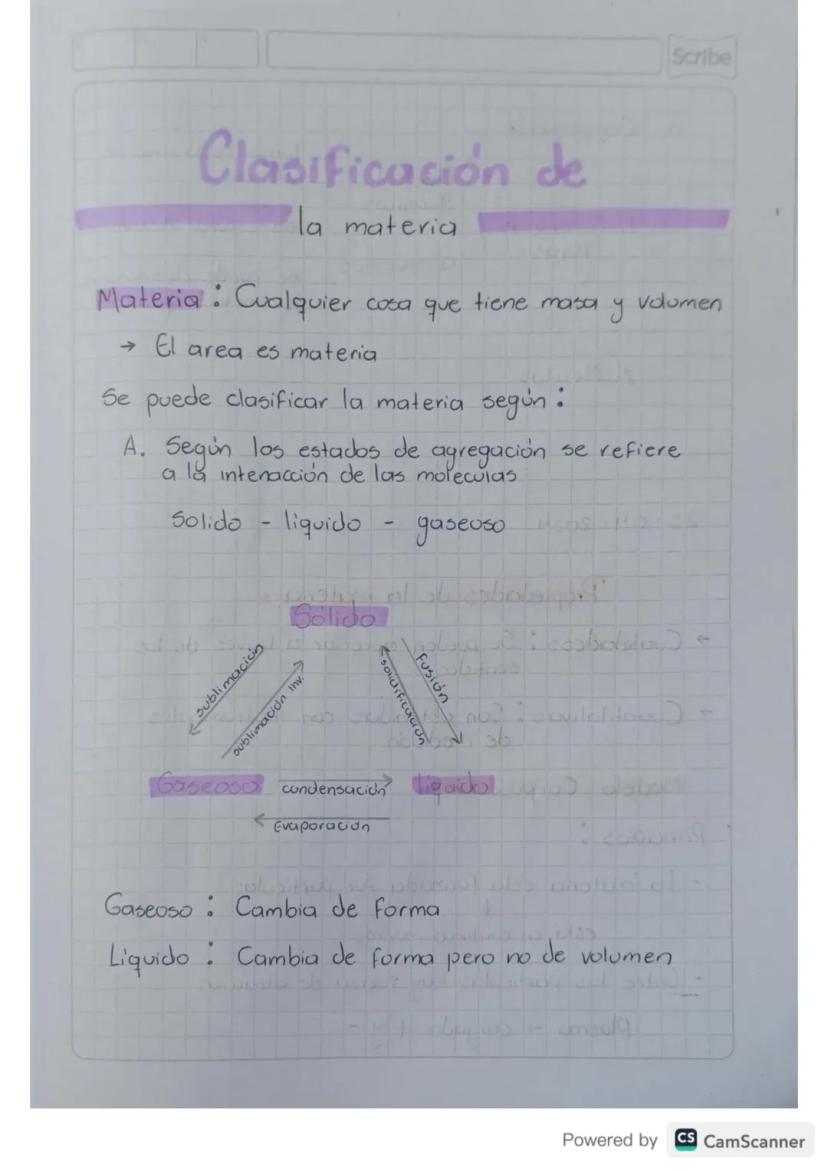 Scribe
Clasificación de
la materia
Materia : Cualquier cosa que tiene masa y volumen
→ El area es materia
Se puede clasificar la materia según :
A. Según los estados de agregación se refiere
a la interacción de las moleculas
Solido - liquido - gaseoso
Sólido
sublimación
sublimación inv.
solidificación
Fusión
Gaseoso condensación liquido
Evaporación
Gaseoso : Cambia de forma
Liquido : Cambia de forma pero no de volumen
Powered by CS CamScanner